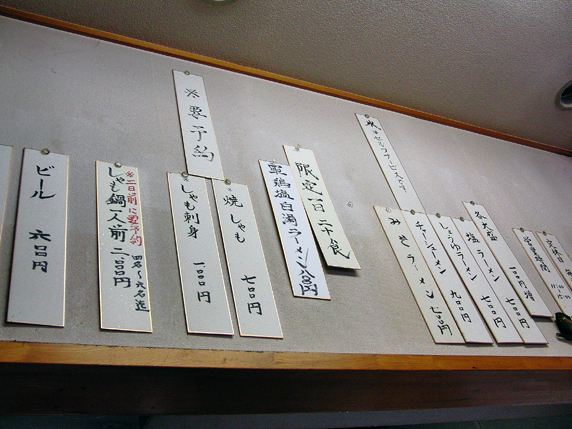 営業時間
定休日
各大盛 一〇〇円増
塩ラーメン 七〇〇円
しょうゆラーメン 七〇〇円
チャーシューメン 九〇〇円
みそラーメン 七〇〇円
水はセルフサービスです
限定一日二十食
軍鶏塩白濁ラーメン 八〇〇円
※要予約
焼しゃも 七〇〇円
しゃも刺身 一〇〇〇円
※二日前に要予約
しゃも鍋一人前 二、〇〇〇円
四名〜六名迄
ビール 六〇〇円